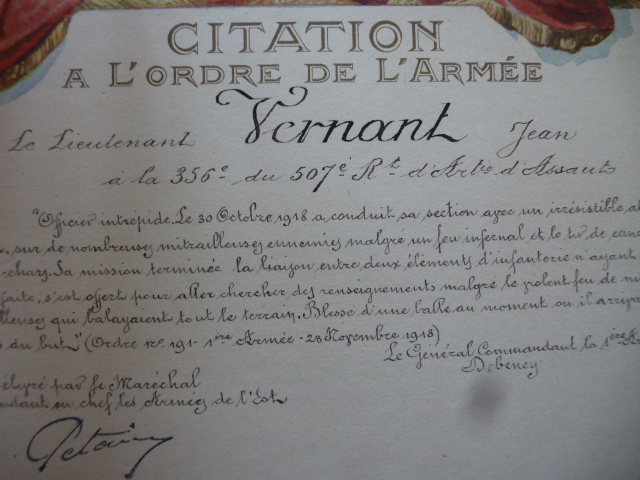 CITATION
A L'ORDRE DE L'ARMÉE
Le Lieutenant Vernant Jean
à la 356e du 507e Rt d'Artie d'Assaut
"Officier intrépide. Le 30 Octobre 1918 a conduit sa section avec un irrésistible
sur de nombreuses mitrailleuses ennemies malgré un feu infernal et le tir de
-chars. Sa mission terminée la liaison entre deux éléments d'infanterie n'ayant
faite, s'est offert pour aller chercher des renseignements malgré le violent feu de
lleuses qui balayaient tout le terrain. Blessé d'une balle au moment où il
du but" (Ordre No 191 - 1ère Armée - 28 Novembre 1918)
Le Général Commandant la 1ère
Debeney
par le Maréchal
ndant en chef les Armées de l'Est
Petain